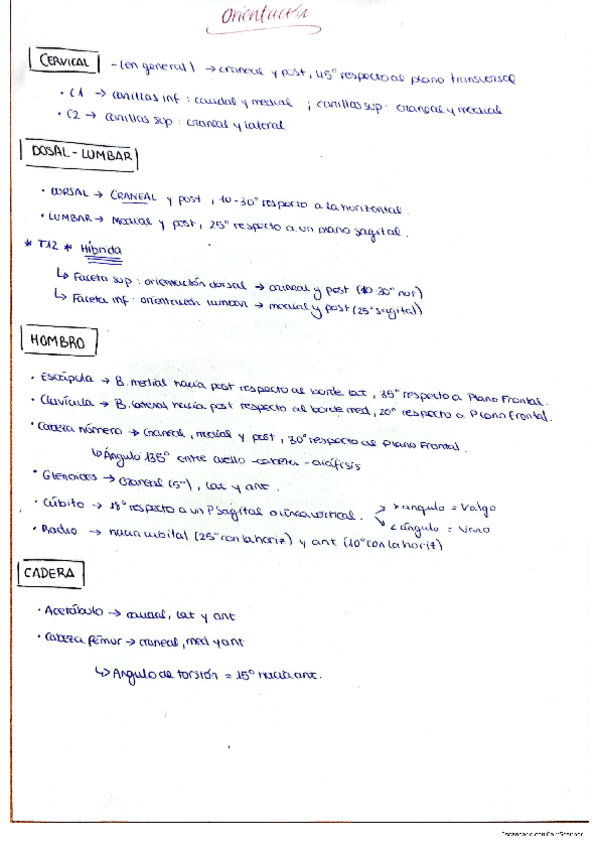 Orientación
CERVICAL - (en general) → craneal y post, 45° respecto al plano transversal
• C1 → carillas inf : caudal y medial ; carillas sup : craneal y medial
• C2 → carillas sup : craneal y lateral
DOSAL - LUMBAR
• DORSAL → CRANEAL y post , 10-30° respecto a la horizontal.
• LUMBAR → Medial y post, 25° respecto a un plano sagital.
* T12 * Híbrida
↳ Faceta sup : orientación dorsal → craneal y post (10-30° hor)
↳ Faceta inf : orientación lumbar → medial y post (25° sagital)
HOMBRO
• Escápula → B. medial hacia post respecto al borde lat, 35° respecto a Plano Frontal.
• Clavícula → B. lateral hacia post respecto al borde med, 20° respecto a Plano Frontal.
• Cabeza húmero → Craneal, medial y post , 30° respecto al Plano Frontal.
↳ Ángulo 135° entre cuello - cabeza - diáfisis
• Glenoides → craneal (5°) , lat y ant .
• Cúbito → 18° respecto a un P sagital o línea vertical. > ángulo = Valgo
< ángulo = Varo
• Radio → hacia cubital (25° con la horiz) y ant (10° con la horiz)
CADERA
• Acetábulo → caudal, lat y ant
• Cabeza fémur → craneal, med y ant
↳ Angulo de torsión = 15° hacia ant.
Escaneado con CamScanner